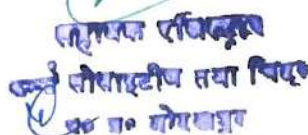 सहायक रजिस्ट्रार
फर्म्स सोसाइटीज तथा चिट्स
उ० प्र० गोरखपुर